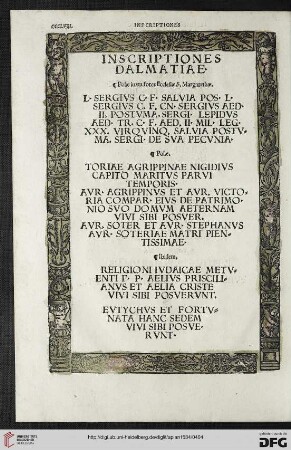 CCCLVIII.
INSCRIPTIONES
INSCRIPTIONES
DALMATIAE.
¶ Polæ iuxta fores Ecclesiæ S. Margarethæ.
L. SERGIVS C. F. SALVIA POS. L.
SERGIVS C. F. CN. SERGIVS AED.
II. POSTVMA. SERGI. LEPIDVS
AED. TR. C. F. AED. II. MIL. LEG.
XXX. VIRQVINQ. SALVIA POSTV-
MA. SERGI. DE SVA PECVNIA.
¶ Polæ.
TORIAE AGRIPPINAE NIGIDIVS
CAPITO MARITVS PARVI
TEMPORIS.
AVR. AGRIPPINVS ET AVR. VICTO-
RIA COMPAR. EIVS DE PATRIMO-
NIO SVO DOMVM AETERNAM
VIVI SIBI POSVER.
AVR. SOTER ET AVR. STEPHANVS
AVR. SOTERIAE MATRI PIEN-
TISSIMAE.
¶ Ibidem.
RELIGIONI IVDAICAE METV-
ENTI P. P. AELIVS PRISCILI-
ANVS ET AELIA CRISTE
VIVI SIBI POSVERVNT.
EVTYCHVS ET FORTV-
NATA HANC SEDEM
VIVI SIBI POSVE-
RVNT.
UNIVERSITÄTS-
BIBLIOTHEK
HEIDELBERG
http://digi.ub.uni-heidelberg.de/diglit/apian1534/0404
gefördert durch die
DFG